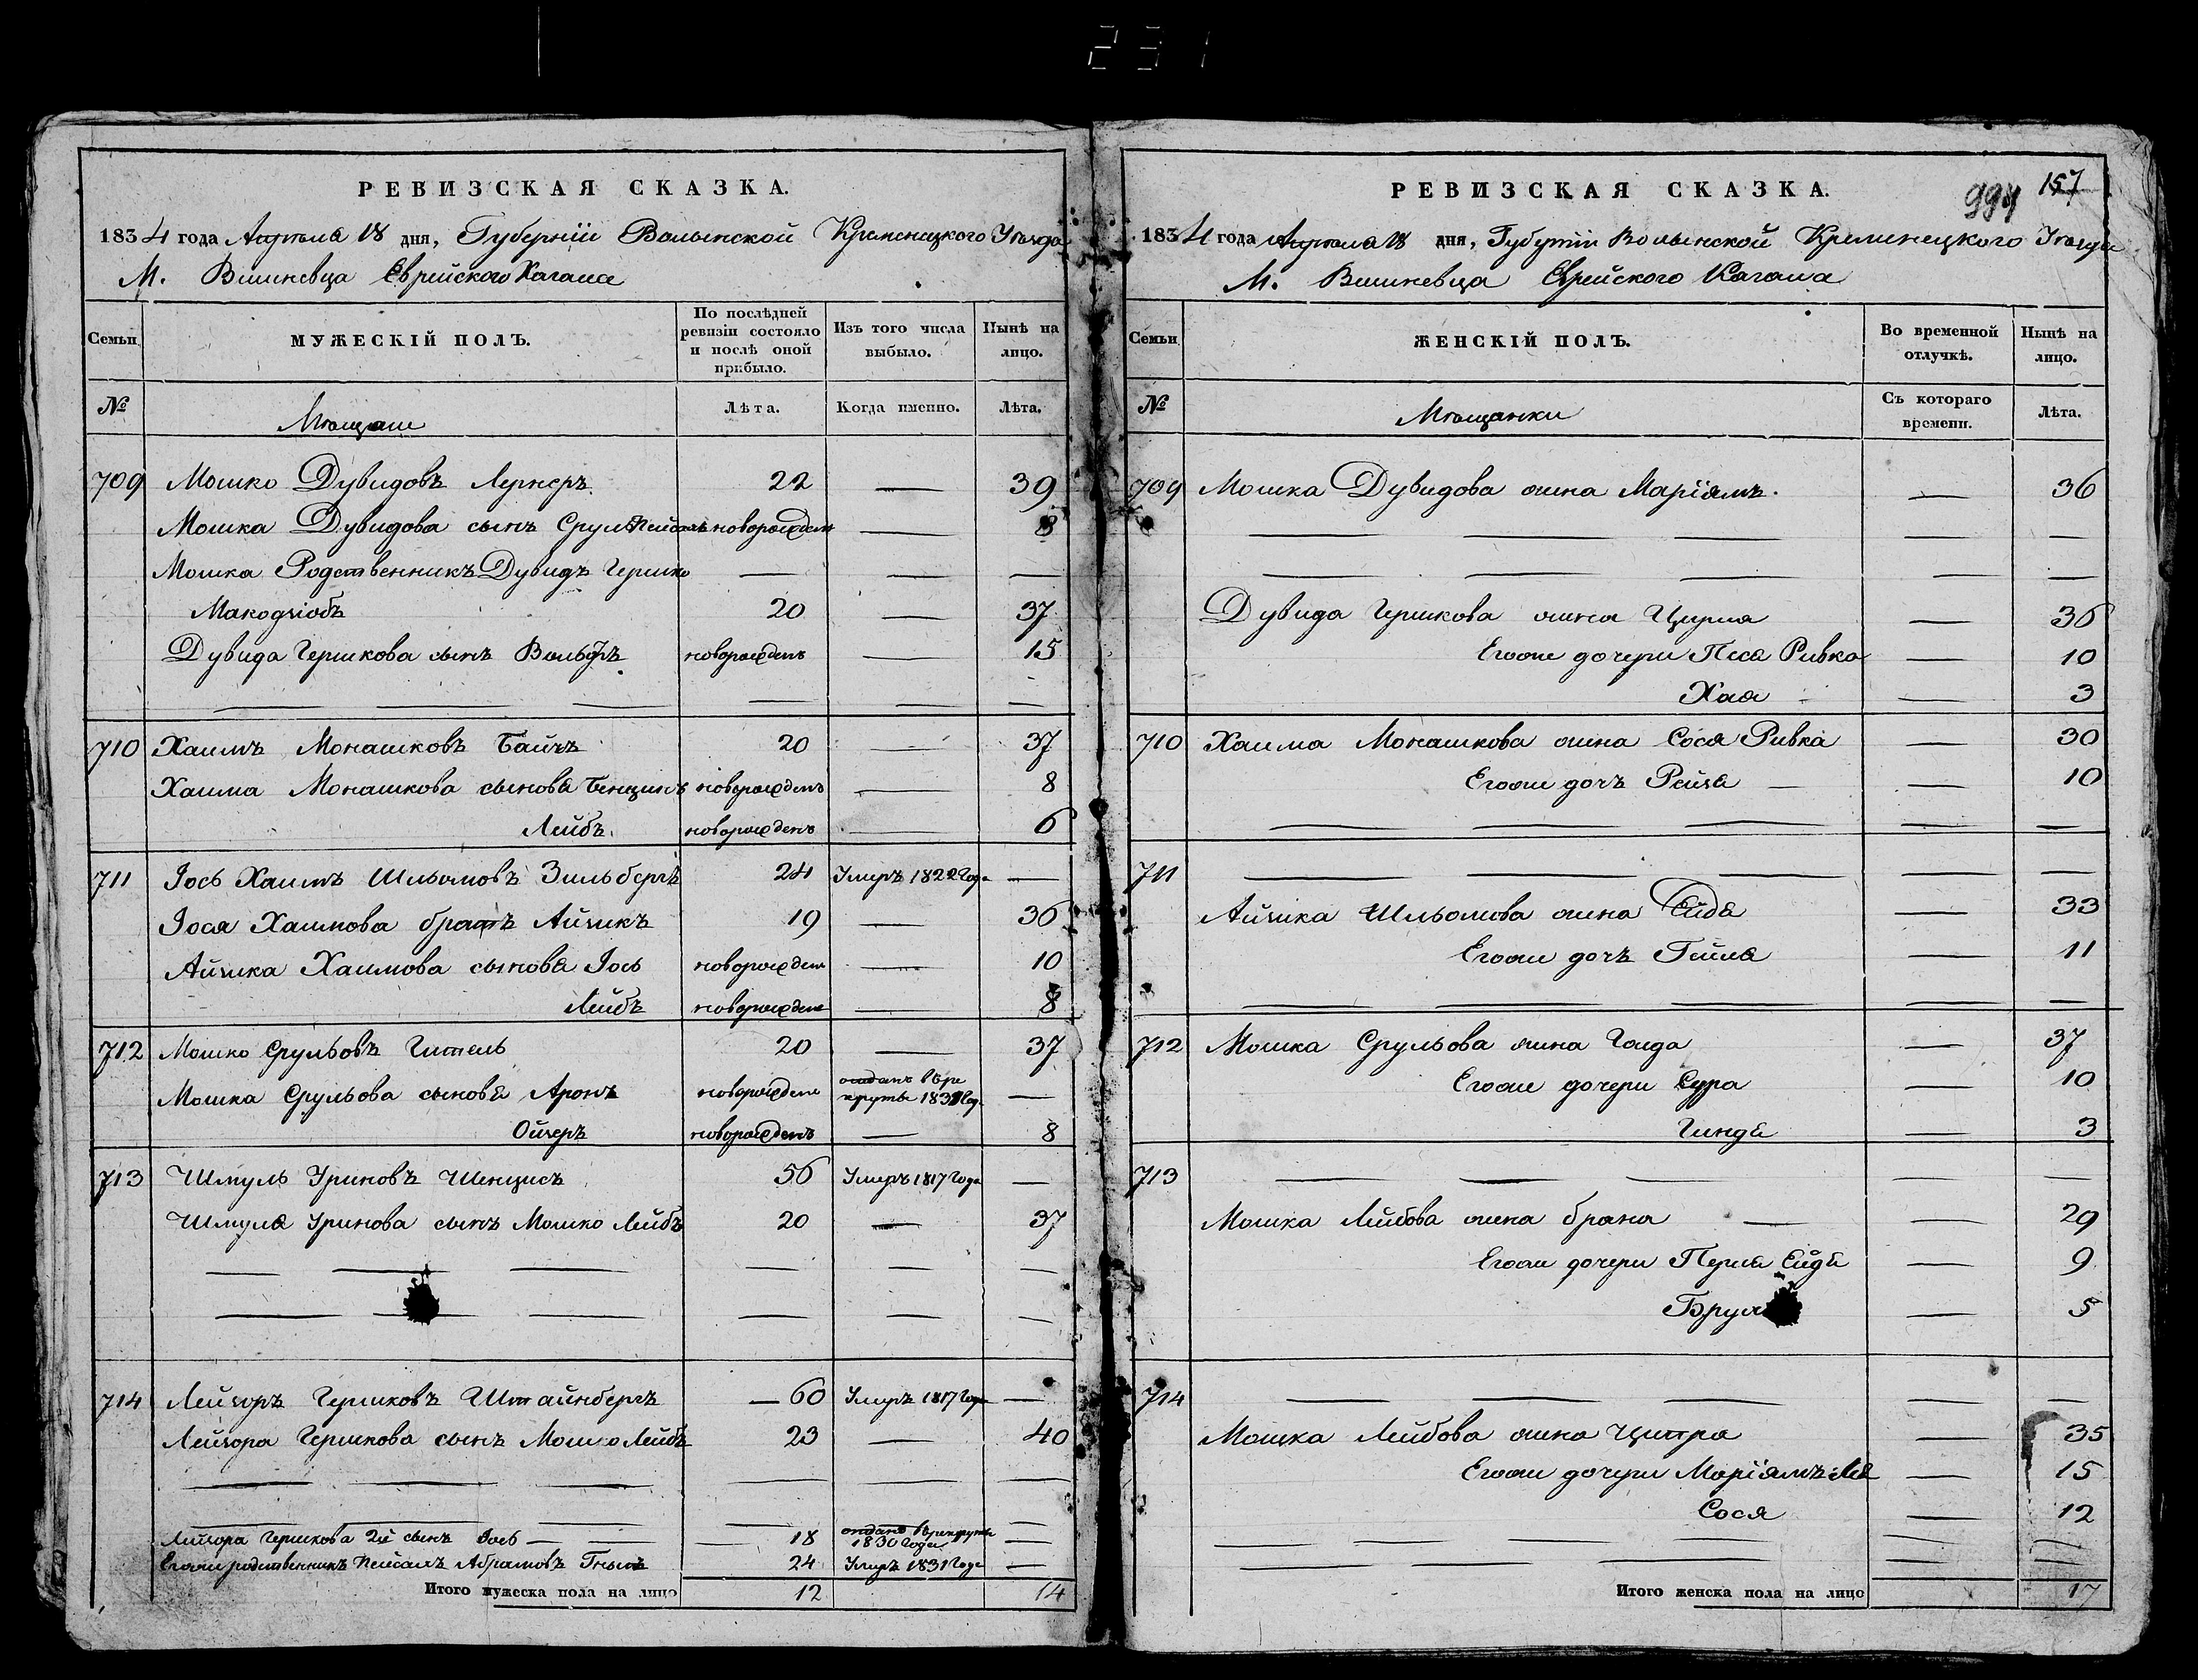 231
РЕВИЗСКАЯ СКАЗКА.
1834 года Апрѣля 18 дня, Губерніи Волынской Кременецкого Уѣзда
М. Вишневца Еврейского Кагала
Семьи
МУЖЕСКІЙ ПОЛЪ.
По послѣдней ревизіи состояло и послѣ оной прибыло.
Изъ того числа выбыло.
Нынѣ на лицо.
№
Мѣщане
Лѣта.
Когда именно.
Лѣта.
709 Мошко Дувидовъ Лернеръ 22 — 39
Мошка Дувидова сынъ Сруль Пейсахъ новорожденъ — 8
Мошка Родственникъ Дувидъ Гершко — — —
20 — 37
Дувида Гершкова сынъ Вольфъ новорожденъ — 15
710 Хаимъ Монашковъ 20 — 37
Хаима Монашкова сыновя Бенцинъ новорожденъ — 8
Лейбъ новорожденъ — 6
711 Іось Хаимъ Шльомовъ Зильбергъ 24 Умеръ 1822 Года —
Іося Хаимова братъ Айзикъ 19 — 36
Айзика Хаимова сыновя Іось новорожденъ — 10
Лейбъ новорожденъ — 8
712 Мошко Срульовъ Гительь 20 — 37
Мошка Срульова сыновя Аронъ новорожденъ отданъ въ ре
круты —
Ойзеръ новорожденъ — 8
713 Шмуль Уриновъ Шенцисъ 56 Умеръ 1817 Года —
Шмуля Уринова сынъ Мошко Лейбъ 20 — 37
714 Лейзоръ Гершковъ Штайнбергъ — 60 Умеръ 1817 Года —
Лейзора Гершкова сынъ Мошко Лейбъ 23 — 40
Лейзора Гершкова 2й сынъ Іось — 18 отданъ въ рекруты 1830 Года —
Егоже родственникъ Пейсахъ Абрамовъ 24 Умеръ 1831 Года —
Итого мужеска пола на лицо 12 14
РЕВИЗСКАЯ СКАЗКА.
994 157
1834 года Апрѣля 18 дня, Губерніи Волынской Кременецкого Уѣзда
М. Вишневца Еврейского Кагала
Семьи
ЖЕНСКІЙ ПОЛЪ.
Во временной отлучкѣ.
Нынѣ на лицо.
№
Мѣщанки
Съ котораго времени.
Лѣта.
709 Мошка Дувидова жена Маріямъ. — 36
Дувида Гершкова жена Цирля — 36
Егоже дочери Песя Ривка — 10
Хая — 3
710 Хаима Монашкова жена Сося Ривка — 30
Егоже дочъ Рейзя — 10
711 — — —
Айзика Шльомова жена Ейдя — 33
Егоже дочъ Гейля — 11
712 Мошка Срульова жена Голда — 37
Егоже дочери Сура — 10
Гиндя — 3
713 — — —
Мошка Лейбова жена Брана — 29
Егоже дочери Перля Ейдя — 9
— 5
714 — — —
Мошка Лейбова жена Ципра — 35
Егоже дочери Маріямъ Лея — 15
Сося — 12
Итого женска пола на лицо 17